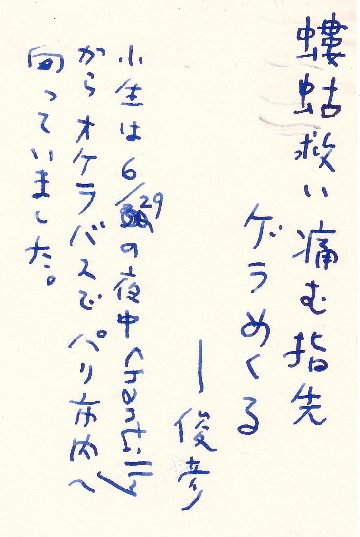 螻蛄救い痛む指先
ゲラめくる
—俊彦
小生は6/29の夜中Chantilly
からオケラバスでパリ市内へ
向っていました。